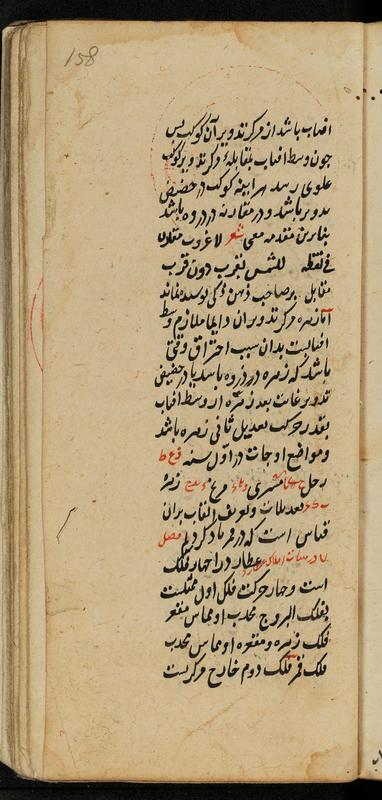 158
افتاب باشد از مرکز تدویر آن کوکب پس
چون وسط افتاب بمقابلهٔ مرکز تدویر کوکب
علوی رسد هراینه کوکب در حضیض
تدویر باشد و در مقارنه در ذروه باشد
بنابرین مقدمه معنی شعر لا غروب مقارن
فی نقطه للشمس تغرب دون قرب
مقابل بر صاحب ذهن ذکی پوسیده نماند
اما زهره مرکز تدویر ان دایما ملازم وسط
افتابست بدان سبب احتراق وقتی
باشد که زهره در ذروه باشد یا در حضیض
تدویر غایت بعد زهره از وسط افتاب
بقدر حرکت تعدیل ثانی زهره باشد
و مواضع اوجات در اول سنه
زحل مشتری مریخ زهره
تعدیلات و تعریف القاب بران
قیاس است که در قمر یاد کردیم فصل
در افلاک عطارد عطارد را چهار فلک
است و چهار حرکت فلک اول ممثلست
بفلک البروج محدب او مماس مقعر
فلک زهره و مقعر او مماس محدب
فلک قمر فلک دوم خارج مرکزست